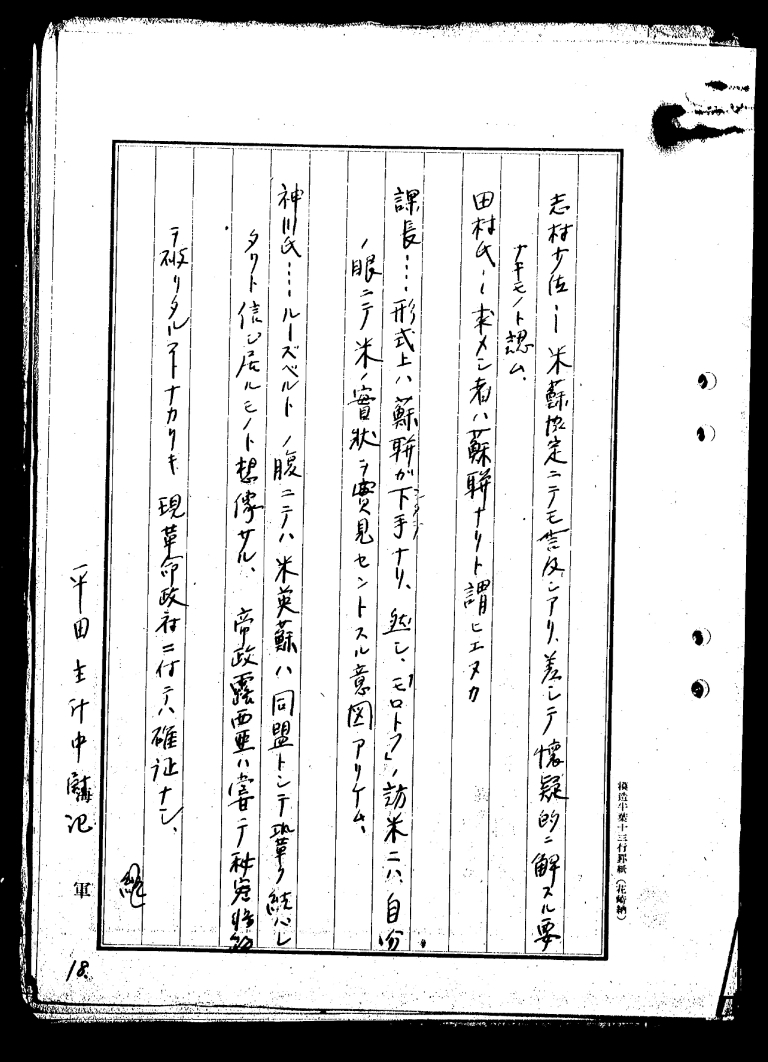 志村少佐… 米蘇協定ニテモ普及シアリ、差シテ懐疑的ニ解スル要
ナキモノト認ム、
田村氏… 求メシ者ハ蘇聯ナリト謂ヒエヌカ
課長…… 形式上ハ蘇聯ガ下手ナリ、然シ、「モロトフ」ノ訪米ニハ自分
ノ眼ニテ米ノ實狀ヲ實見セントスル意図アリケム、
神川氏…… ルーズベルトノ腹ニテハ米英蘇ハ同盟トシテ鞏ク結バレ
タリト信ジ居ルモノト想像サル、 帝政露西亜ハ嘗テ秘密
ヲ破リタルコトナカリキ 現革命政府ニ付テハ確証ナシ、
平田主計中
記
軍
模造半葉十三行罫紙(花崎納)
18.